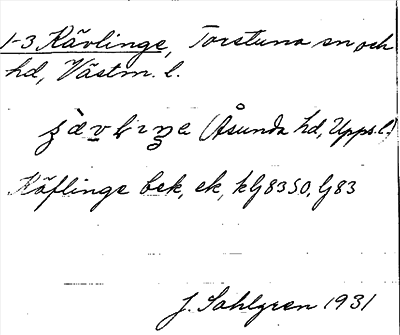 1-3 Kävlinge, Torstuna sn och
hd, Västm. l.
(Åsunda hd, Upps. l.)
Käflinge bek, ek, kG8350, G83
J. Sahlgren 1931